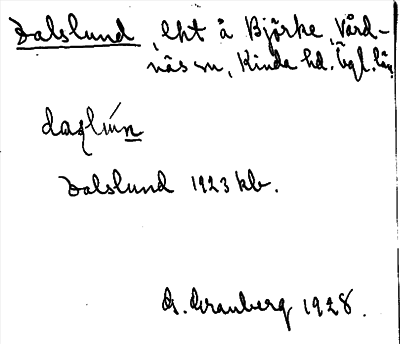 Dalslund, lht å Björke, Vård-
näs sn, Kinda hd. Ögl. län
Dalslund 1923 kb.
G. Granberg 1928.